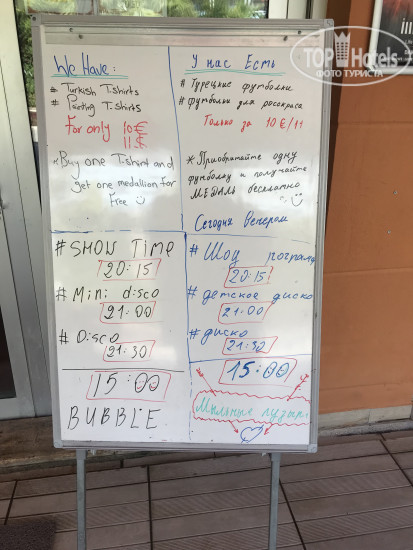 We Have:
# Turkish T.shirts
# Painting T.shirts
For only 10€
11$
*Buy one T.shirt and
get one medallion for
Free
# SHOW TIME
20:15
# Mini disco
21:00
# Disco
21:30
15:00
BUBBLE
У нас Есть
# Турецкие футболки
# футболки для росскраса
Только за 10€/11
* Приобритайте одну
футболку и получайте
МЕДАЛЬ бесплатно
Сегодня Вечером
# Шоу
20:15
# детское диско
21:00
# диско
21:30
15:00
Мыльные пузыри
TOP Hotels
ФОТО ТУРИСТА